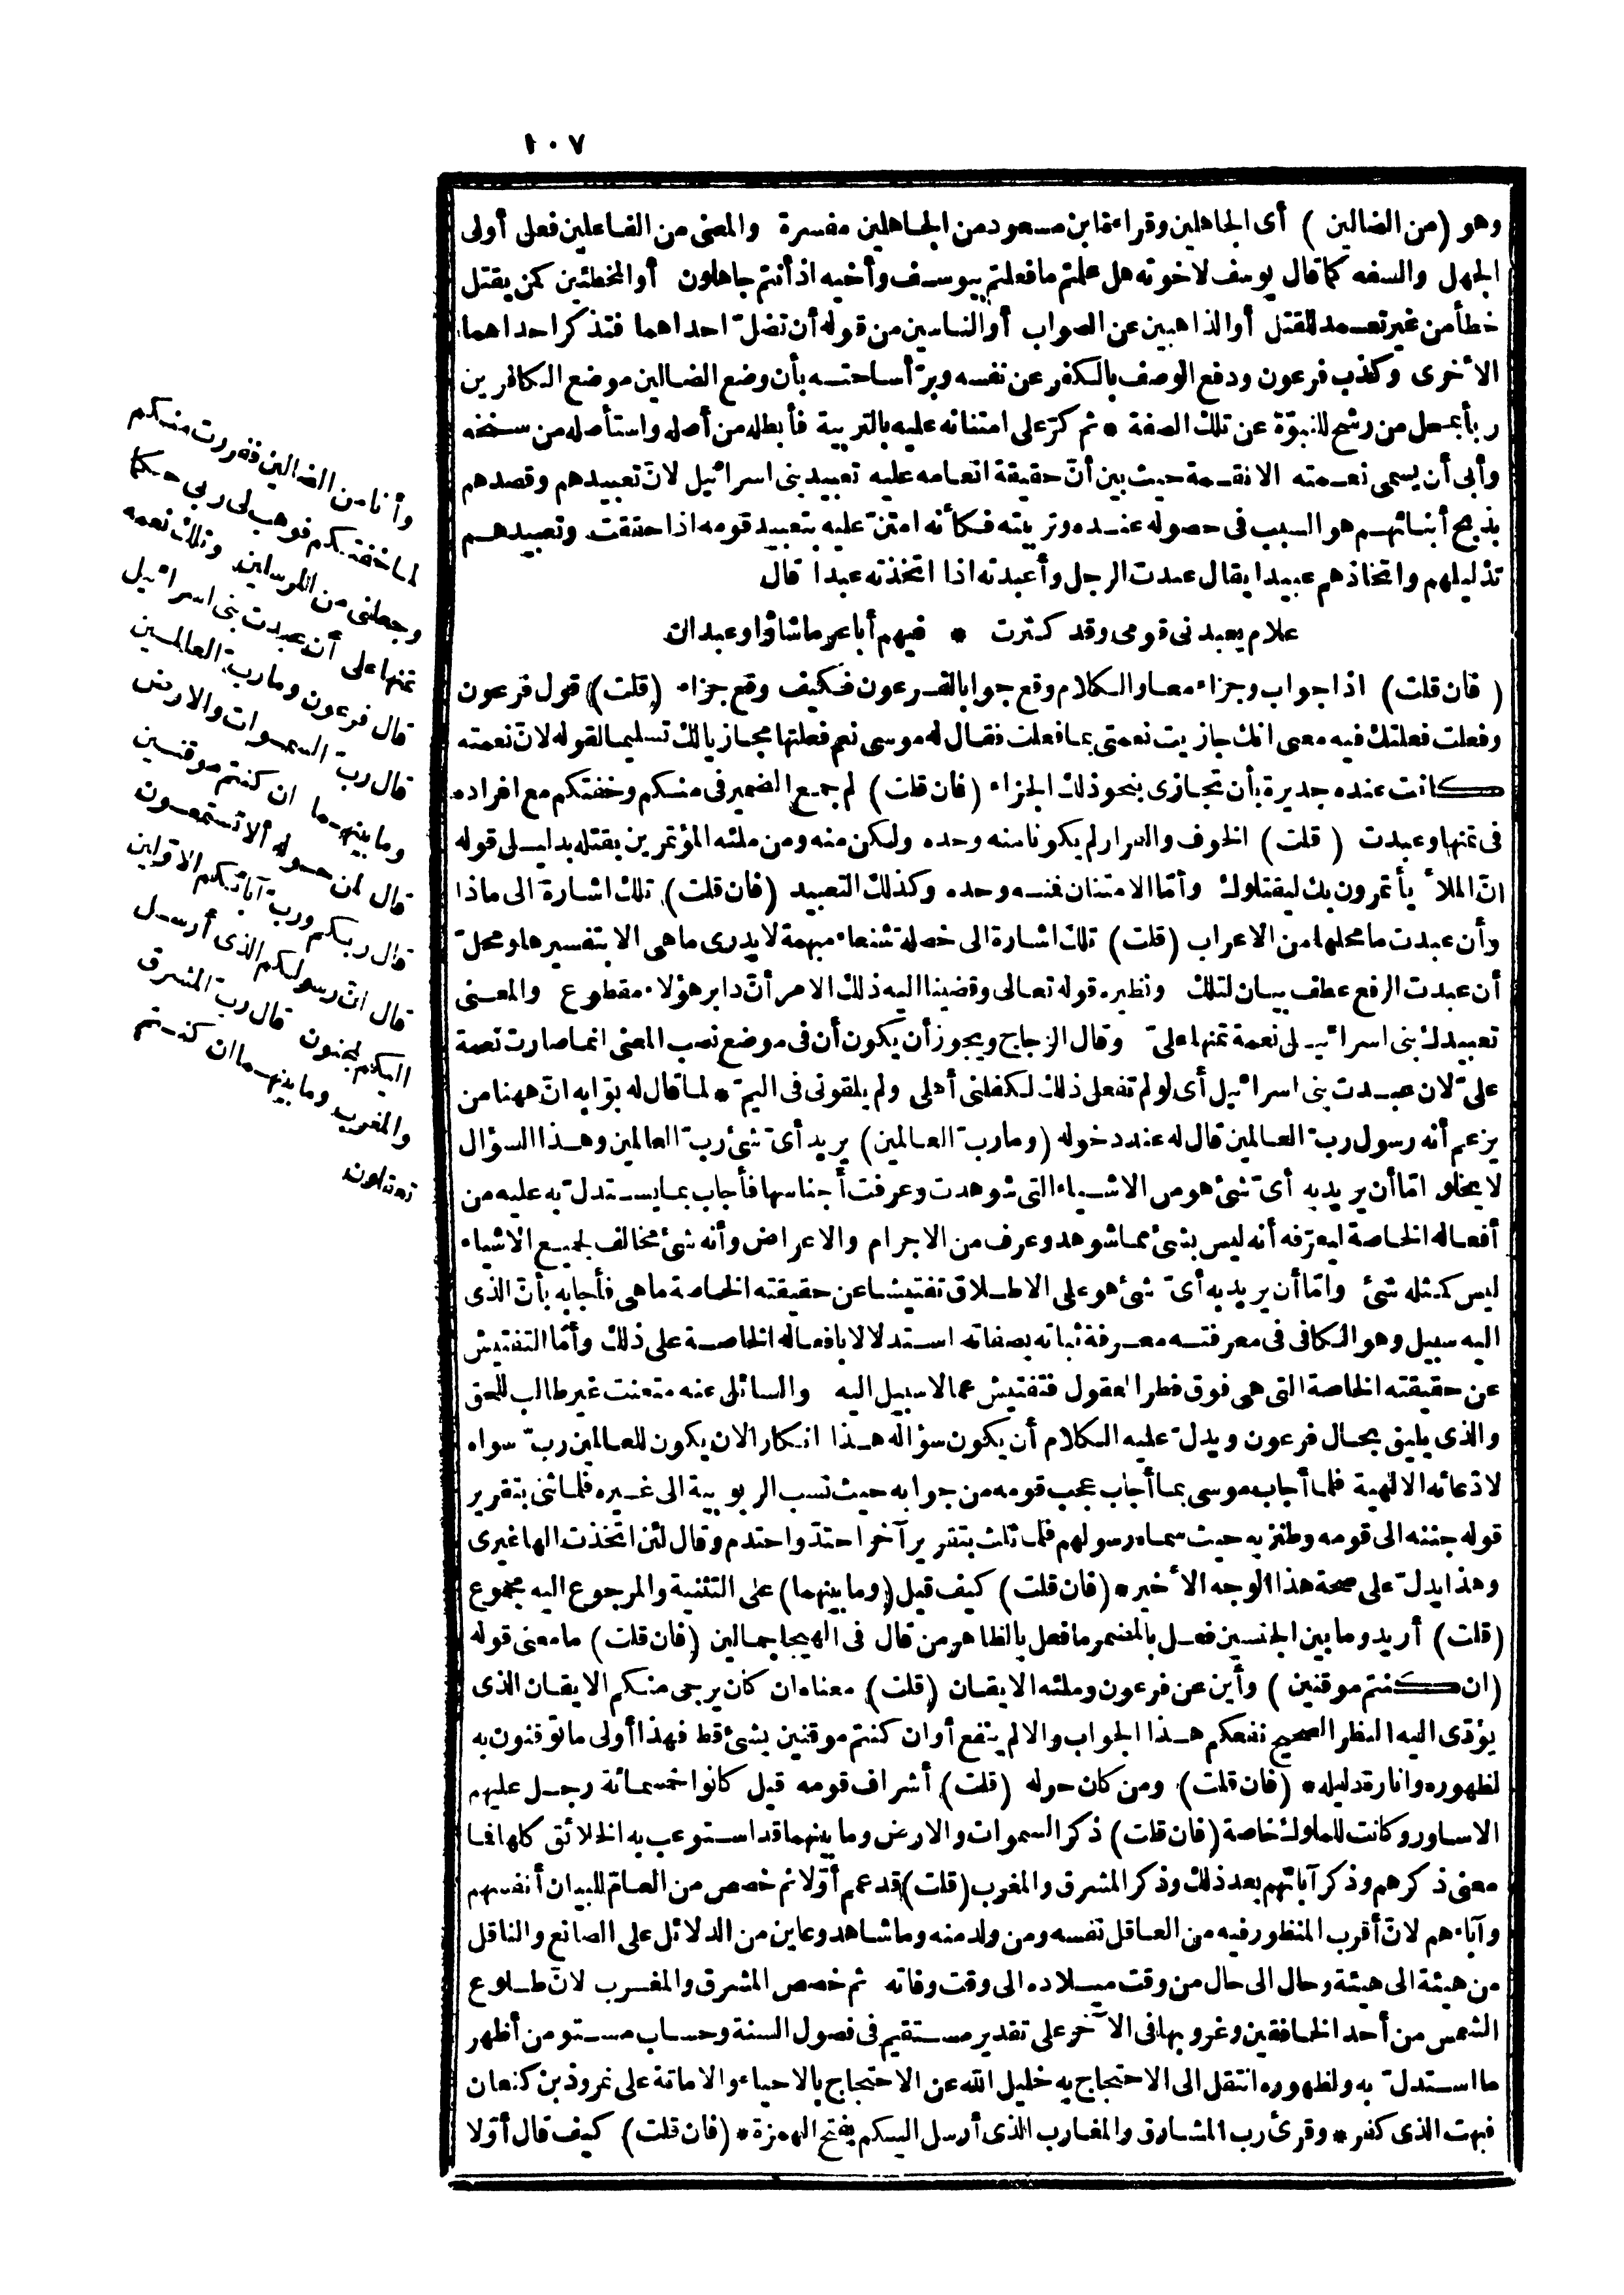 ١٠٧
وهو (من الضالين) أى الجاهلين وقراءة ابن مسعود من الجاهلين مفسرة والمعنى من الفاعلين فعل أولى
الجهل والسفه كما قال يوسف لاخوته هل علمتم ما فعلتم بيوسف وأخيه اذ أنتم جاهلون أو المخطئين كمن يقتل
خطأ من غير تعمد للقتل أو الذاهبين عن الصواب أو الناسين من قوله أن تضلّ احداهما فتذكر احداهما
الأخرى وكذب فرعون ودفع الوصف بالكفر عن نفسه وبرّأ ساحته بأن وضع الضالين موضع الكافرين
ربأ بمحل من رشح للنبوّة عن تلك الصفة * ثم كرّ على امتنانه عليه بالتربية فأبطله من أصله واستأصله من سنخه
وأبى أن يسمى نعمته الا نقمة حيث بين أنّ حقيقة انعامه عليه تعبيد بنى اسرائيل لانّ تعبيدهم وقصدهم
بذبح أبنائهم هو السبب فى حصوله عنده وتربيته فكأنه امتنّ عليه بتعبيد قومه اذا حققت وتعبيدهم
تذليلهم واتخاذهم عبيدا يقال عبدت الرجل وأعبدته اذا اتخذته عبدا قال
علام يعبدنى قومى وقد كثرت * فيهم أباعر ماشاؤا وعبدان
(فان قلت) اذا جواب وجزاء معا والكلام وقع جوابا لفرعون فكيف وقع جزاء (قلت) قول فرعون
وفعلت فعلتك فيه معنى انك جازيت نعمتى بما فعلت فقال له موسى نعم فعلتها مجازيا لك تسليما لقوله لانّ نعمته
كانت عنده جديرة بأن تجازى بنحو ذلك الجزاء (فان قلت) لم جمع الضمير فى منكم وخفتكم مع افراده
فى تمنها وعبدت (قلت) الخوف والفرار لم يكونا منه وحده ولكن منه ومن ملئه المؤتمرين بقتله بدليل قوله
انّ الملأ يأتمرون بك ليقتلوك وأمّا الامتنان فمنه وحده وكذلك التعبيد (فان قلت) تلك اشارة الى ماذا
وأن عبدت ما محلها من الاعراب (قلت) تلك اشارة الى خصلة شنعاء مبهمة لا يدرى ما هى الا بتفسيرها ومحلّ
أن عبدت الرفع عطف بيان لتلك ونظيره قوله تعالى وقضينا اليه ذلك الامر أنّ دابر هؤلاء مقطوع والمعنى
تعبيدك بنى اسرائيل نعمة تمنها علىّ وقال الزجاج ويجوز أن يكون أن فى موضع نصب المعنى انما صارت نعمة
علىّ لان عبدت بنى اسرائيل أى لو لم تفعل ذلك لكفلنى أهلى ولم يلقونى فى اليمّ * لما قال له بوّابه انّ ههنا من
يزعم أنه رسول ربّ العالمين قال له عند دخوله (وما ربّ العالمين) يريد أىّ شئ ربّ العالمين وهذا السؤال
لا يخلو امّا أن يريد به أىّ شئ هو من الاشياء التى شوهدت وعرفت أجناسها فأجاب بما يستدلّ به عليه من
أفعاله الخاصة ليعرّفه أنه ليس بشئ مما شوهد وعرف من الاجرام والاعراض وأنه شئ مخالف لجميع الاشياء
ليس كمثله شئ وامّا أن يريد به أىّ شئ هو على الاطلاق تفتيشا عن حقيقته الخاصة ما هى فأجابه بأنّ الذى
اليه سبيل وهو الكافى فى معرفته معرفة ثباته بصفاته استدلالا بافعاله الخاصة على ذلك وأمّا التفتيش
عن حقيقته الخاصة التى هى فوق فطر العقول فتفتيش عما لا سبيل اليه والسائل عنه متعنت غير طالب للحق
والذى يليق بحال فرعون ويدلّ عليه الكلام أن يكون سؤاله هذا انكارا لان يكون للعالمين ربّ سواه
لادّعائه الالهية فلما أجاب موسى بما أجاب عجب قومه من جوابه حيث نسب الربوبية الى غيره فلما ثنى بتقرير
قوله جننه الى قومه وطنز به حيث سماه رسولهم فلما ثلث بتقرير آخر احتدّ واحتدم وقال لئن اتخذت الها غيرى
وهذا يدلّ على صحة هذا الوجه الأخير * (فان قلت) كيف قيل (وما بينهما) على التثنية والمرجوع اليه مجموع
(قلت) أريد وما بين الجنسين فعل بالمضمر ما فعل بالظاهر من قال فى الهيجا جمالين (فان قلت) ما معنى قوله
(ان كنتم موقنين) وأين عن فرعون وملئه الايقان (قلت) معناه ان كان يرجى منكم الايقان الذى
يؤدّى اليه النظر الصحيح نفعكم هذا الجواب والا لم ينفع أو ان كنتم موقنين بشئ قط فهذا أولى ما توقنون به
لظهوره وانارة دليله * (فان قلت) ومن كان حوله (قلت) أشراف قومه قيل كانوا خمسمائة رجل عليهم
الاساور وكانت للملوك خاصة (فان قلت) ذكر السموات والارض وما بينهما قد استوعب به الخلائق كلها فما
معنى ذكرهم وذكر آبائهم بعد ذلك وذكر المشرق والمغرب (قلت) قد عمم أوّلا ثم خصص من العامّ للبيان أنفسهم
وآباءهم لانّ أقرب المنظور فيه من العاقل نفسه ومن ولد منه وما شاهد وعاين من الدلائل على الصانع والناقل
من هيئة الى هيئة وحال الى حال من وقت ميلاده الى وقت وفاته ثم خصص المشرق والمغرب لانّ طلوع
الشمس من أحد الخافقين وغروبها فى الآخر على تقدير مستقيم فى فصول السنة وحساب مستو من أظهر
ما استدلّ به ولظهوره انتقل الى الاحتجاج به خليل الله عن الاحتجاج بالاحياء والاماتة على نمروذ بن كنعان
فبهت الذى كفر * وقرئ رب المشارق والمغارب الذى أرسل اليكم بفتح الهمزة * (فان قلت) كيف قال أوّلا
وأنا من الضالين ففررت منكم
لما خفتكم فوهب لى ربى حكما
وجعلنى من المرسلين وتلك نعمة
تمنها على أن عبدت بنى اسرائيل
قال فرعون وما ربّ العالمين
قال ربّ السموات والارض
وما بينهما ان كنتم موقنين
قال لمن حوله ألا تستمعون
قال ربكم وربّ آبائكم الاوّلين
قال انّ رسولكم الذى أرسل
اليكم لمجنون قال ربّ المشرق
والمغرب وما بينهما ان كنتم
تعقلون